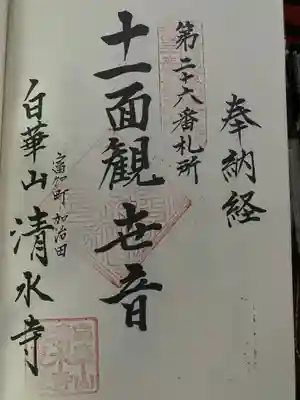 奉納経
第二十六番札所
十一面観世音
富加町 加治田
白華山 清水寺